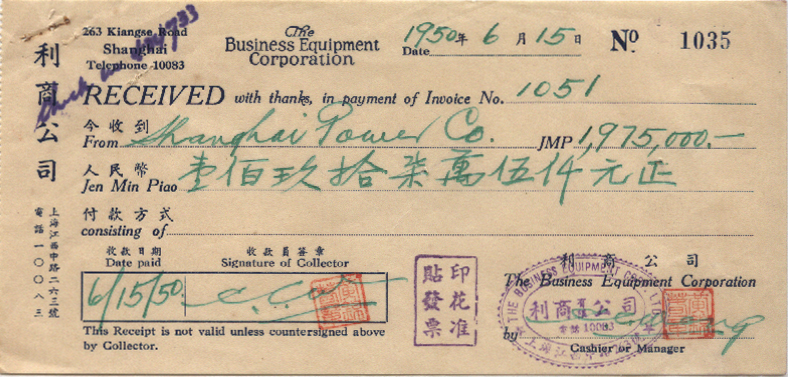 263 Kiangse Road
Shanghai
Telephone 10083
The
Business Equipment
Corporation
1950年 6月 15日
Date
No 1035
利商公司
上海江西中路二六三號
電話一〇〇八三
RECEIVED with thanks, in payment of Invoice No. 1051
今收到
From Shanghai Power Co. JMP 1,975,000.—
人民幣
Jen Min Piao 壹佰玖拾柒萬伍仟元正
付款方式
consisting of
收款日期
Date paid
收款員簽章
Signature of Collector
6/15/50
This Receipt is not valid unless countersigned above
by Collector.
印花准
貼發票
利商公司
The Business Equipment Corporation
THE BUSINESS EQUIPMENT CORP. LTD.
利商有限公司
電話 10083
by
Cashier or Manager